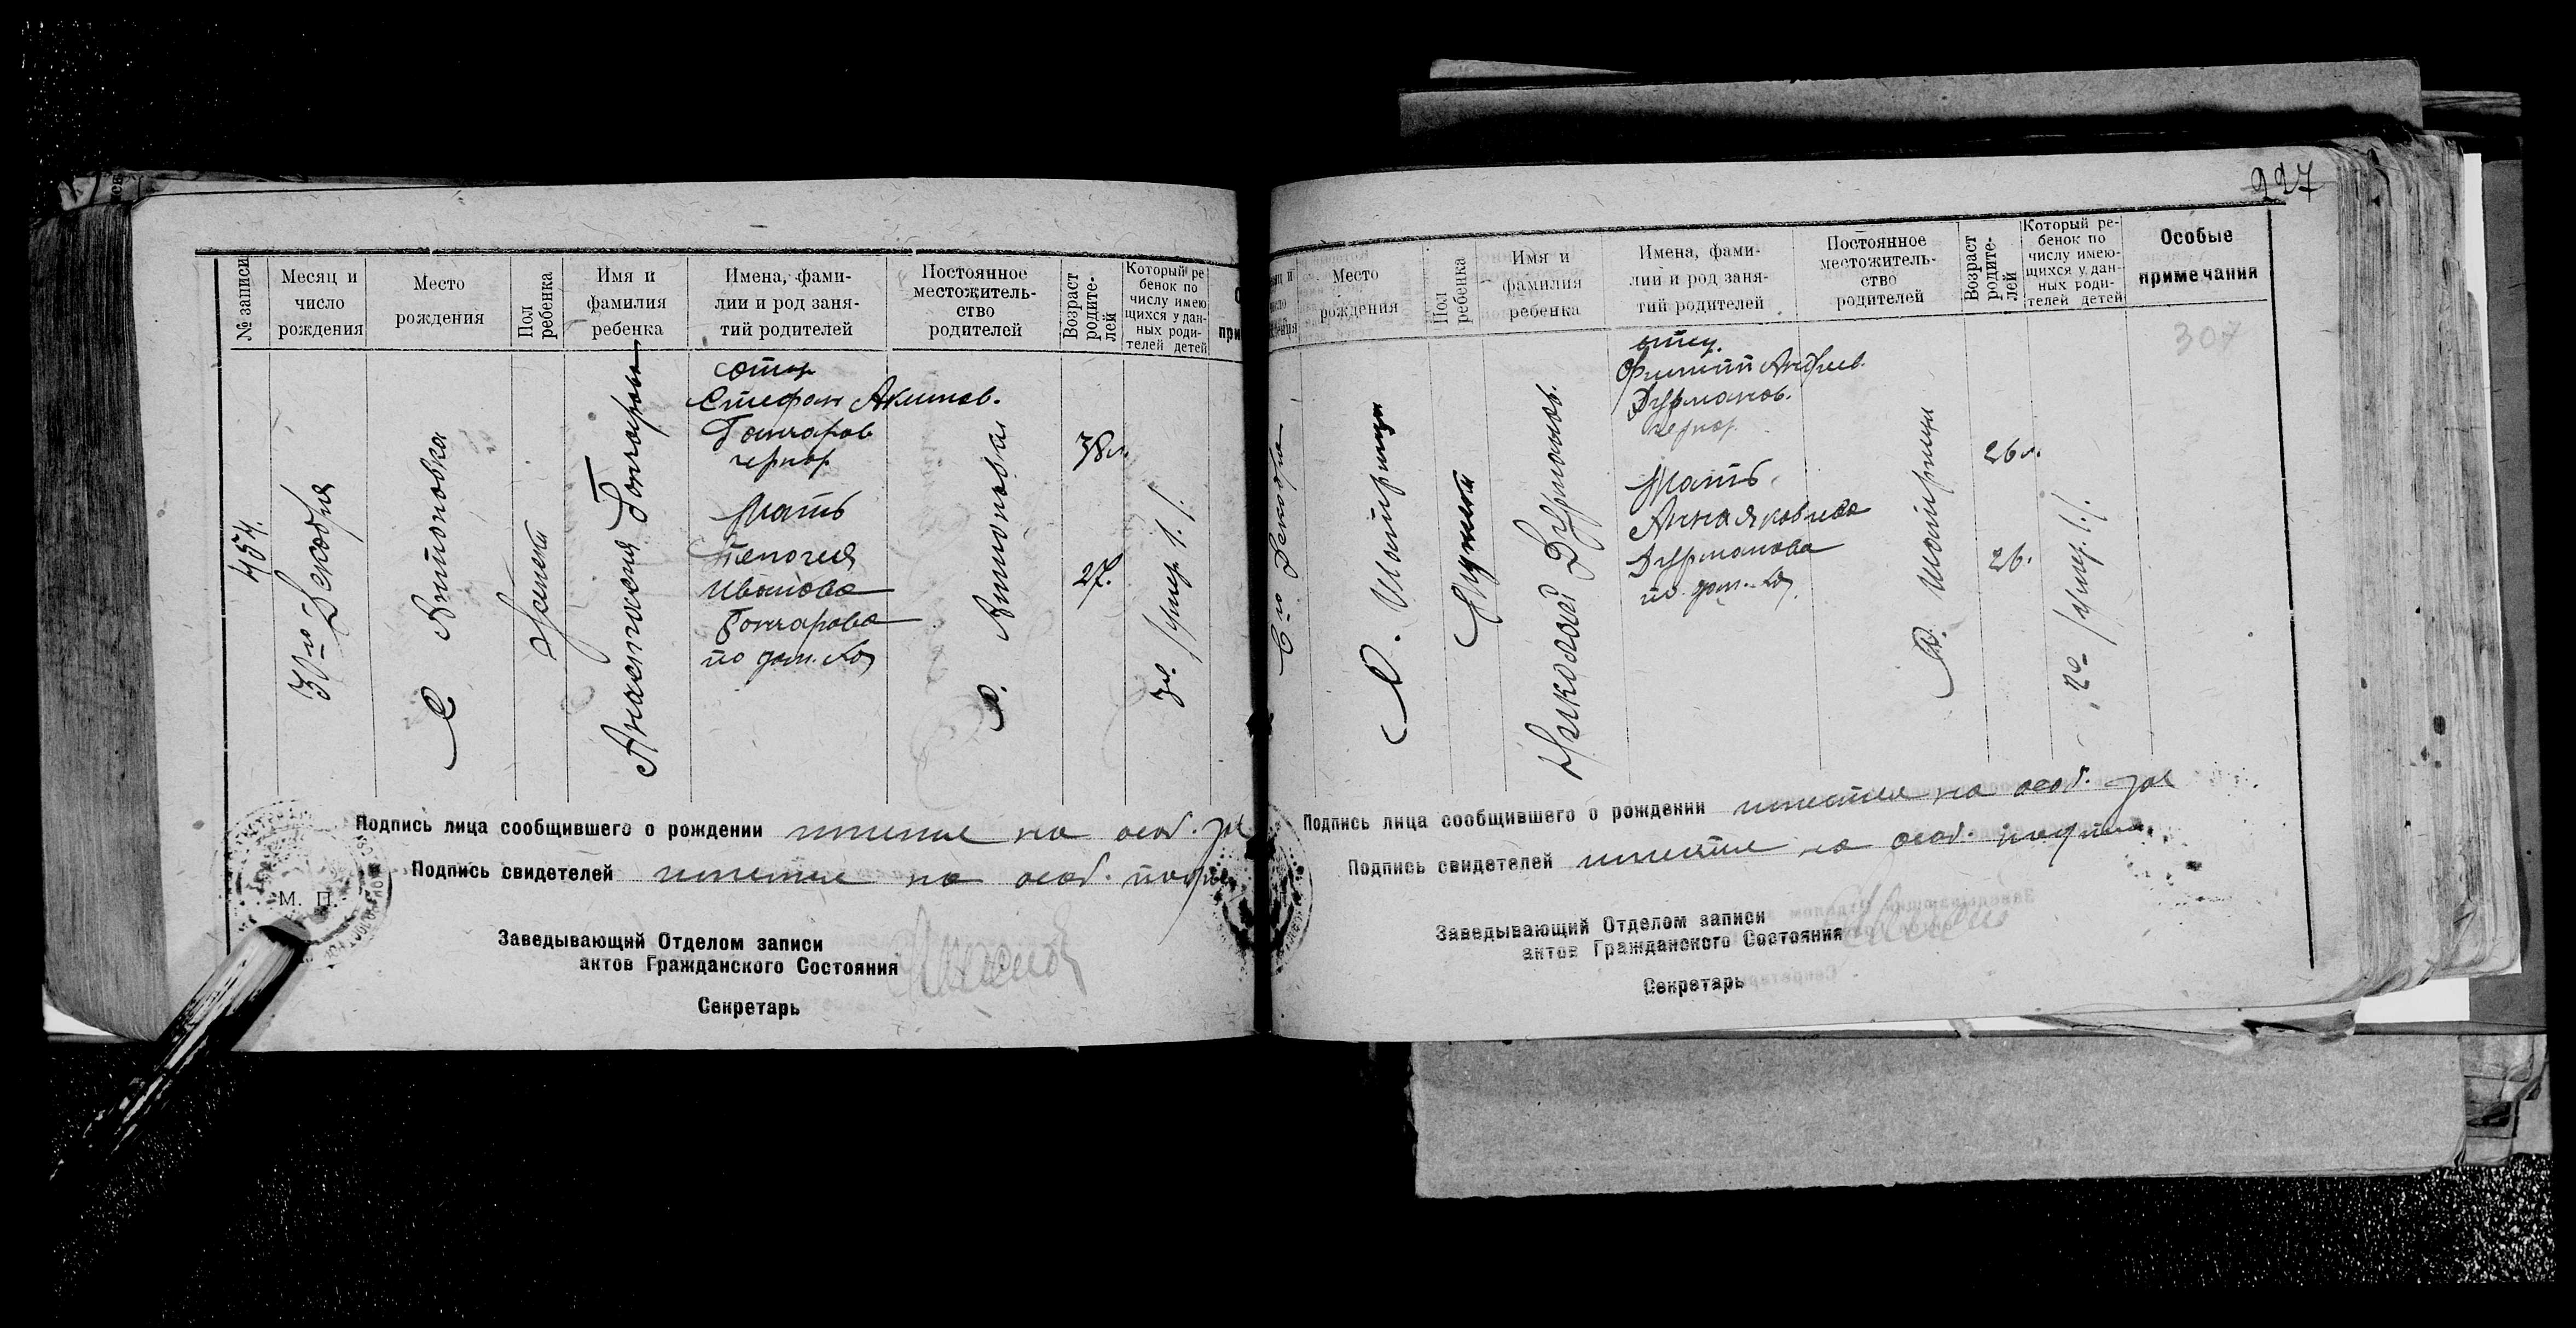 № записи
Месяц и
число
рождения
Место
рождения
Пол
ребенка
Имя и
фамилия
ребенка
Имена, фами-
лии и род заня-
тий родителей
Постоянное
местожитель-
ство
родителей
Возраст
родите-
лей
Который ре
бенок по
числу имею
щихся у дан-
ных роди-
телей детей
454.
31го Декабря
С Антоновка
Женск
Анастасия Гончарова
отец
Стефан Акимов.
Гончаров
чернор
Мать
Иванова
Гончарова
по дом. хоз
с. Антоновка
38л.
27.
/умер 1./
Подпись лица сообщившего о рождении имеется на особ.
Подпись свидетелей имеется на особ.
М. П.
Заведывающий Отделом записи
актов Гражданского Состояния
Секретарь
227
Место
рождения
Пол
ребенка
Имя и
фамилия
ребенка
Имена, фами-
лии и род заня-
тий родителей
Постоянное
местожитель-
ство
родителей
Возраст
родите-
лей
Который ре-
бенок по
числу имею-
щихся у дан-
ных роди-
телей детей
Особые
примечания
307
6го Декабря
С.
Мужск
Николай Дурманов.
отец.
Филипп Андреев.
Дурманов.
чернор.
Мать
Анна Яковлева
Дурманова
по дом. хоз.
с.
26л.
26.
2й /умер. 1./
Подпись лица сообщившего о рождении имеется на особ.
Подпись свидетелей имеется на особ.
Заведывающий Отделом записи
актов Гражданского Состояния
Секретарь